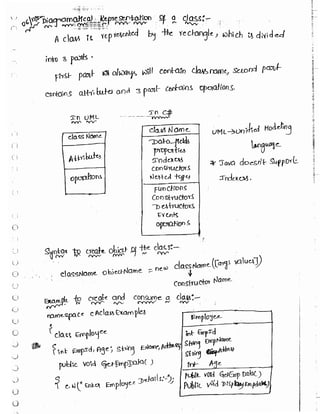 Diagramatical Representation of a class:-
A class is represented by the rectangle, which is divided
into 3 parts.
First part always will contain class name, second part
contains attributes and 3 part contains operations.
In UML
class Name
Attributes
operations
In C#
class Name
Data fields
properties
Indexers
constructors
Nested types
Functions
Constructors
Destructors
Events
operations
UML → Unified Modeling
language.
* Java doesn't support
Indexers.
Syntax to create object of the class:-
className objectName = new className([args values])
Constructor Name.
Example to create and consume a class:-
namespace cAClassExamples
{
class Employee
{ int EmpId, Age; string EName, Address;
public void GetEmpData( )
{
c.W("Enter Employee Details:-");
Employee
int EmpId
string EmpName
string Address
int Age
public void GetEmpData( )
public void DisplayEmpData( )